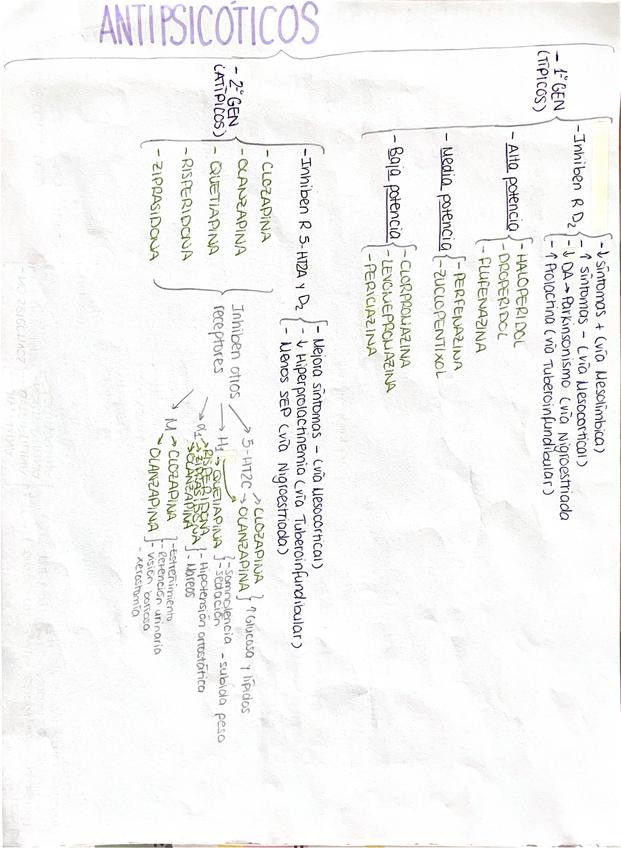 ANTIPSICÓTICOS
- 1ª GEN (TÍPICOS)
- Inhiben R D2
- ↓ síntomas + (vía Mesolímbica)
- ↑ síntomas - (vía Mesocortical)
- ↓ DA → Parkinsonismo (vía Nigroestriada
- ↑ Prolactina (vía Tuberoinfundibular)
- Alta potencia
- HALOPERIDOL
- DROPERIDOL
- FLUFENAZINA
- Media potencia
- PERFENAZINA
- ZUCLOPENTIXOL
- Baja potencia
- CLORPROMAZINA
- LEVOMEPROMAZINA
- PERICIAZINA
- 2ª GEN (ATÍPICOS)
- Inhiben R 5-HT2A y D2
- Mejora síntomas - (vía Mesocortical)
- ↓ Hiperprolactinemia (vía Tuberoinfundibular)
- Menos SEP (vía Nigroestriada)
- CLOZAPINA
- OLANZAPINA
- QUETIAPINA
- RISPERIDONA
- ZIPRASIDONA
Inhiben otros
receptores
5-HT2C → CLOZAPINA
→ OLANZAPINA
↑ Glucosa y lípidos
H1 → QUETIAPINA
- somnolencia - subida peso
- sedación
α1 → RISPERIDONA
→ ZIPRASIDONA
→ OLANZAPINA
- Hipotensión ortostática
- Mareos
M → CLOZAPINA
→ OLANZAPINA
- Estreñimiento
- Retención urinaria
- visión borrosa
- xerostomía